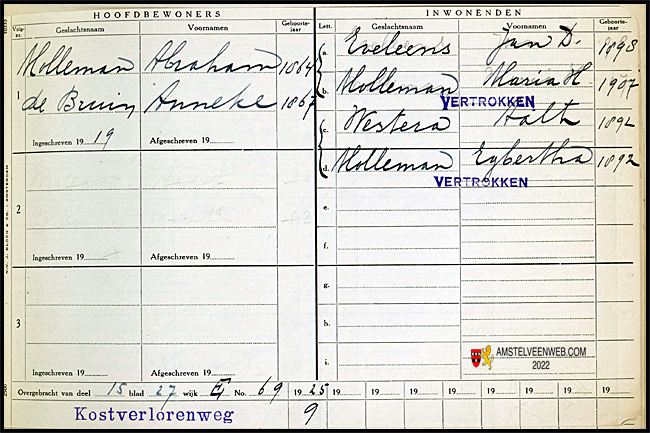 HOOFDBEWONERS
INWONENDEN
Volg-nr.
Geslachtsnaam
Voornamen
Geboorte-jaar
Lett.
Geslachtsnaam
Voornamen
Geboorte-jaar
1
Molleman Abraham 1864
de Bruin Anneke 1867
Ingeschreven 19 19
Afgeschreven 19
a. Eveleens Jan D. 1898
b. Molleman Maria H. 1907
VERTROKKEN
c. Westera Aalt 1892
d. Molleman Egbertha 1892
VERTROKKEN
2
Ingeschreven 19
Afgeschreven 19
e.
f.
3
Ingeschreven 19
Afgeschreven 19
g.
h.
i.
AMSTELVEENWEB.COM
2022
Overgebracht van deel 15 blad 27 wijk E No. 69
1925 19 19 19 19 19 19 19 19
Kostverlorenweg
9